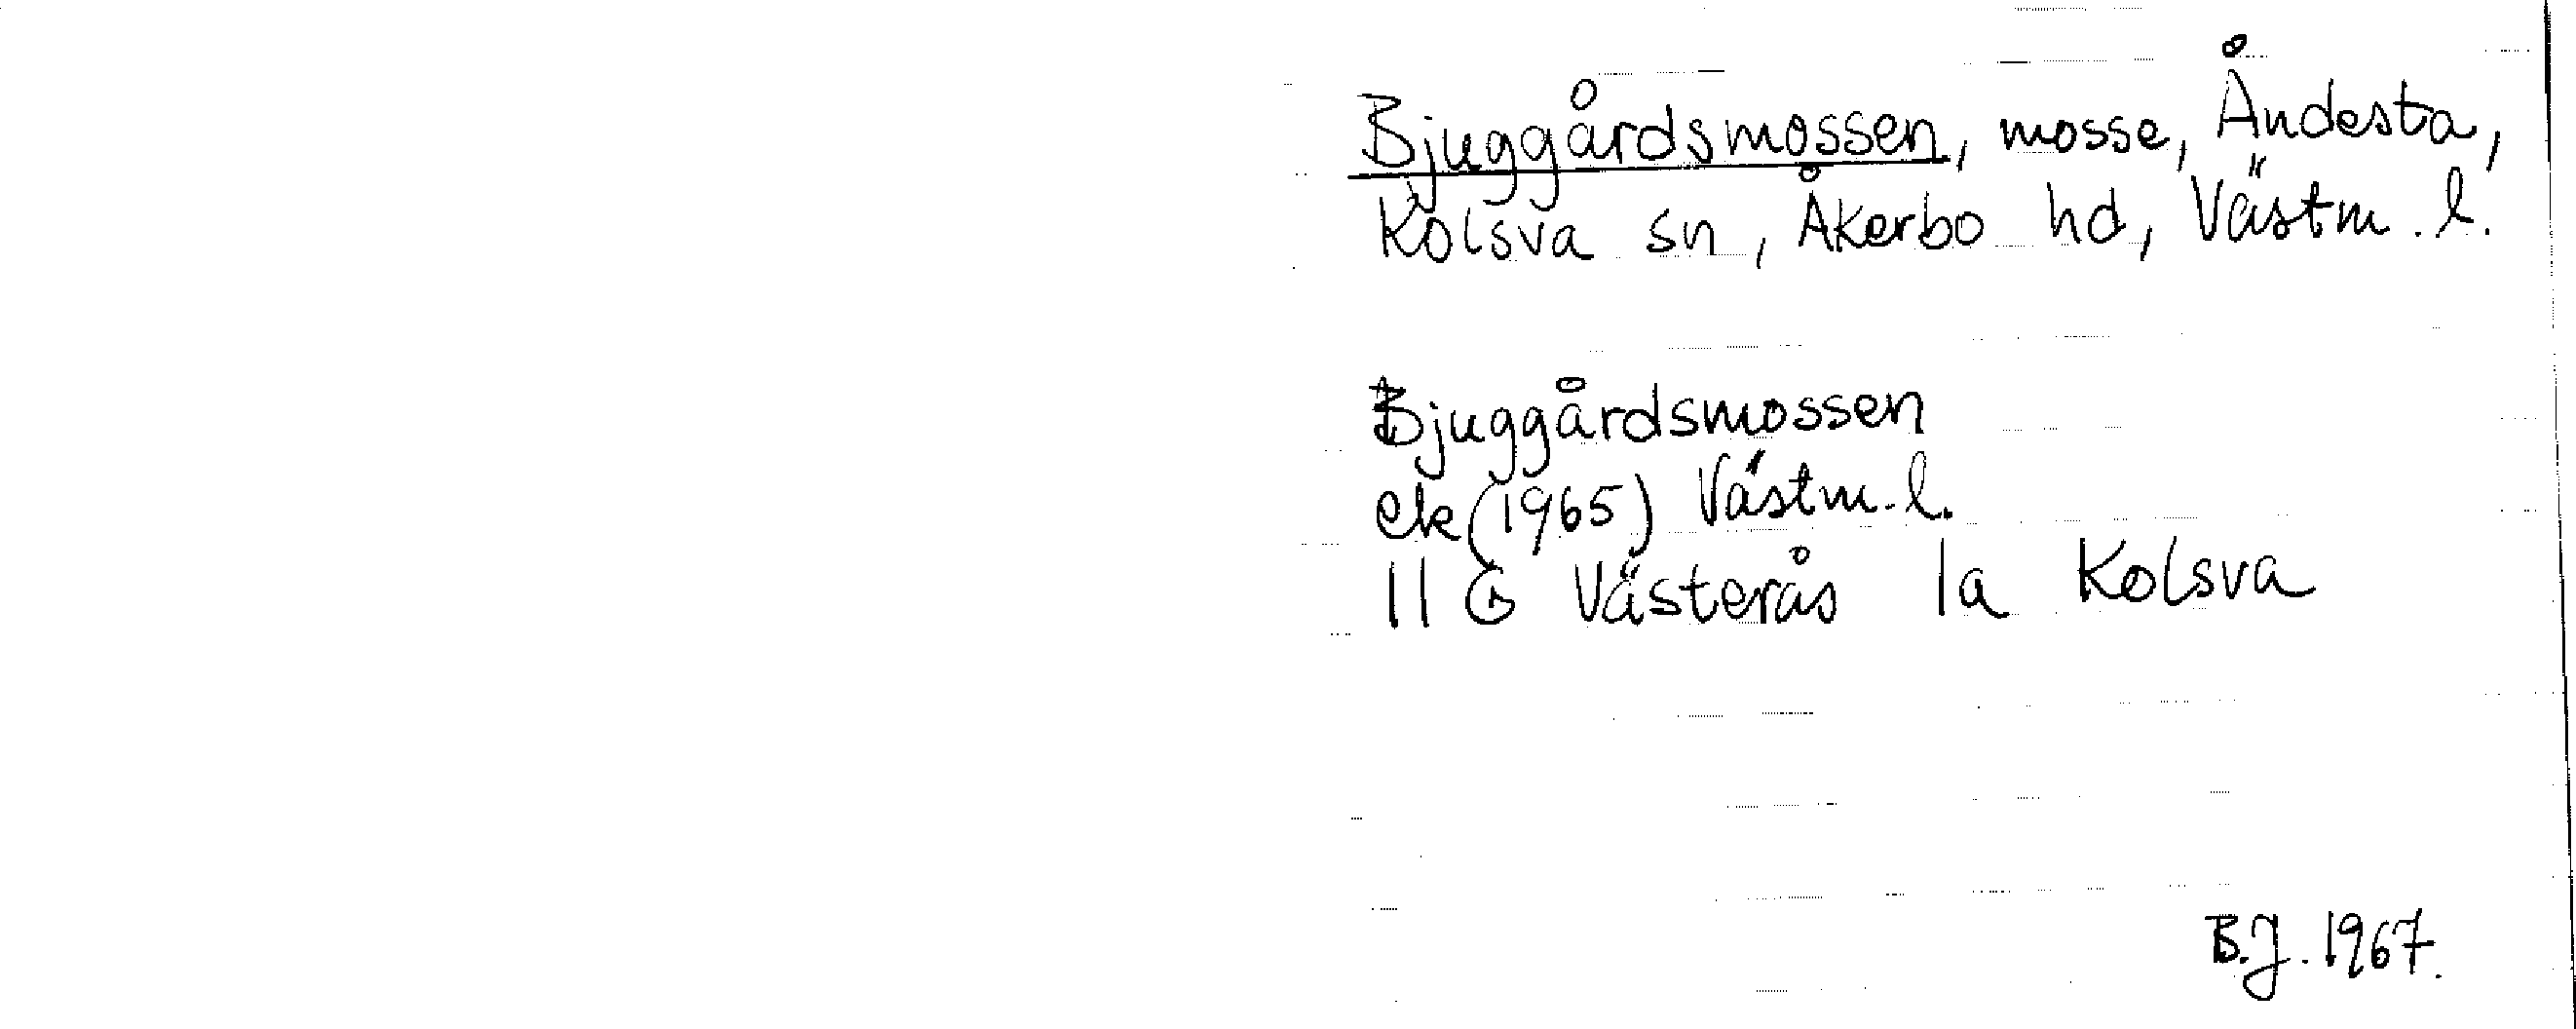 Bjuggårdsmossen, mosse, Åndesta,
Kolsva sn, Åkerbo hd, Västm. l.
Bjuggårdsmossen
ek (1965) Västm. l.
11 G Västerås 1a Kolsva
B.J. 1967.